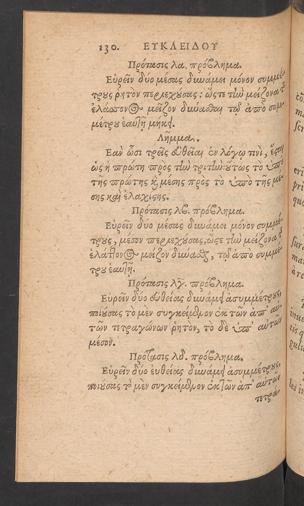 130. ΕΥΚΛΕΙΔΟΥ
Πρότασις λα. πρόβλημα.
Εὑρεῖν δύο μέσας δυνάμει μόνον συμμέ-
τρους ῥητὸν περιεχούσας: ὥστε τὴν μείζονα τῆς
ἐλάττονος μεῖζον δύνασθαι τῷ ἀπὸ συμ-
μέτρου ἑαυτῇ μήκει.
Λῆμμα.
Ἐὰν ὦσι τρεῖς εὐθεῖαι ἐν λόγῳ τινί, ἔσται
ὡς ἡ πρώτη πρὸς τὴν τρίτην, οὕτως τὸ ὑπὸ
τῆς πρώτης καὶ μέσης πρὸς τὸ ὑπὸ τῆς μέ-
σης καὶ ἐλαχίσης.
Πρότασις λβ. πρόβλημα.
Εὑρεῖν δύο μέσας δυνάμει μόνον συμμέ-
τρους, μέσον περιεχούσας, ὥστε τὴν μείζονα τῆς
ἐλάττονος μεῖζον δύνασθαι, τῷ ἀπὸ συμμέ-
τρου ἑαυτῇ.
Πρότασις λγ. πρόβλημα.
Εὑρεῖν δύο εὐθείας δυνάμει ἀσυμμέτρους,
ποιούσας τὸ μὲν συγκείμενον ἐκ τῶν ἀπ' αὐ-
τῶν τετραγώνων ῥητὸν, τὸ δὲ ὑπ' αὐτῶν
μέσον.
Πρότασις λδ. πρόβλημα.
Εὑρεῖν δύο εὐθείας δυνάμει ἀσυμμέτρους,
ποιούσας τὸ μὲν συγκείμενον ἐκ τῶν ἀπ' αὐτῶν
τετρα-